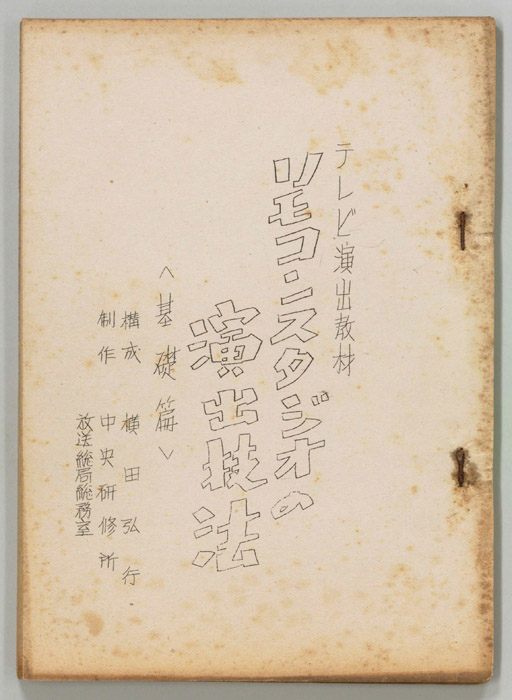 テレビ演出教材
リモコン・スタジオの
演出技法
<基礎篇>
構成 横田弘行
制作 中央研修所
放送総局総務室